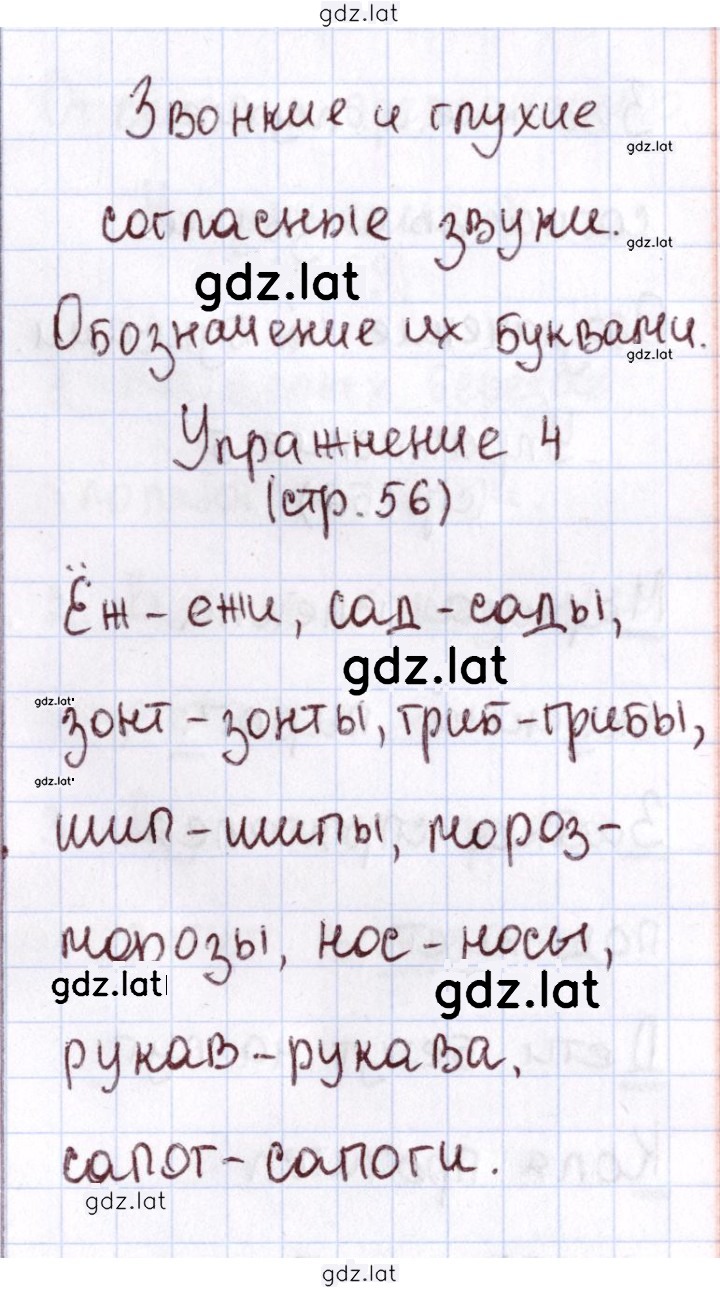 gdz.lat
Звонкие и глухие
gdz.lat
согласные звуки.
gdz.lat
gdz.lat
Обозначение их буквами.
gdz.lat
Упражнение 4
(стр. 56)
Ёж - ежи, сад - сады,
gdz.lat
gdz.lat
зонт - зонты, гриб - грибы,
gdz.lat
шип - шипы, мороз -
морозы, нос - носы,
gdz.lat
gdz.lat
рукав - рукава,
сапог - сапоги.
gdz.lat
gdz.lat